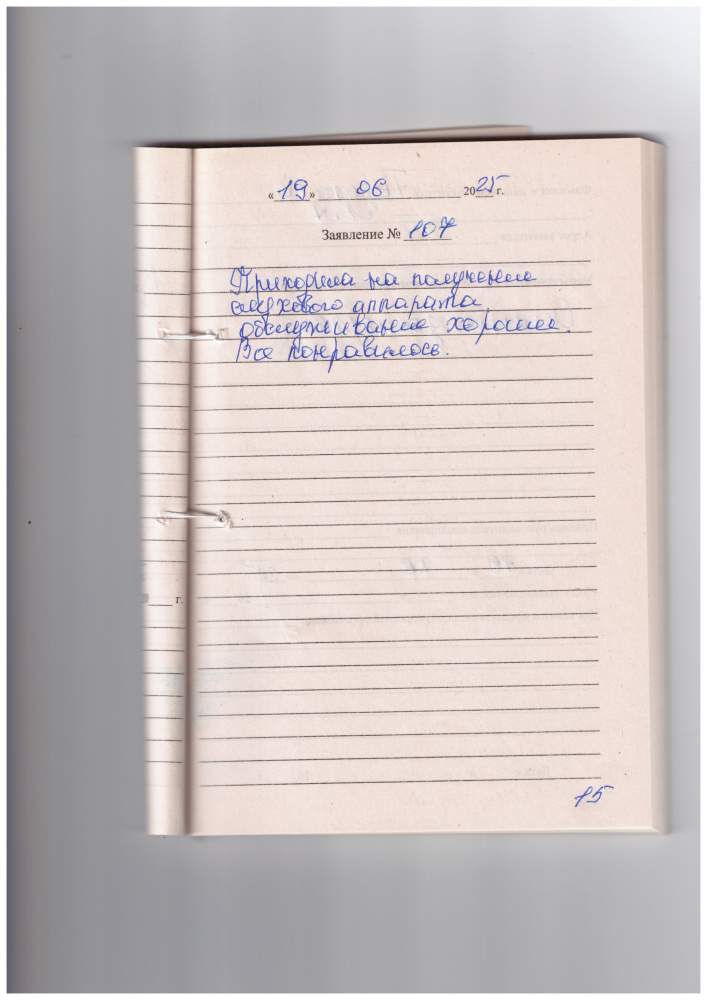 «19» 06 2025 г.
Заявление № 107
Приходила на получение
слухового аппарата
обслуживание хорошее.
Все понравилось.
г.
15